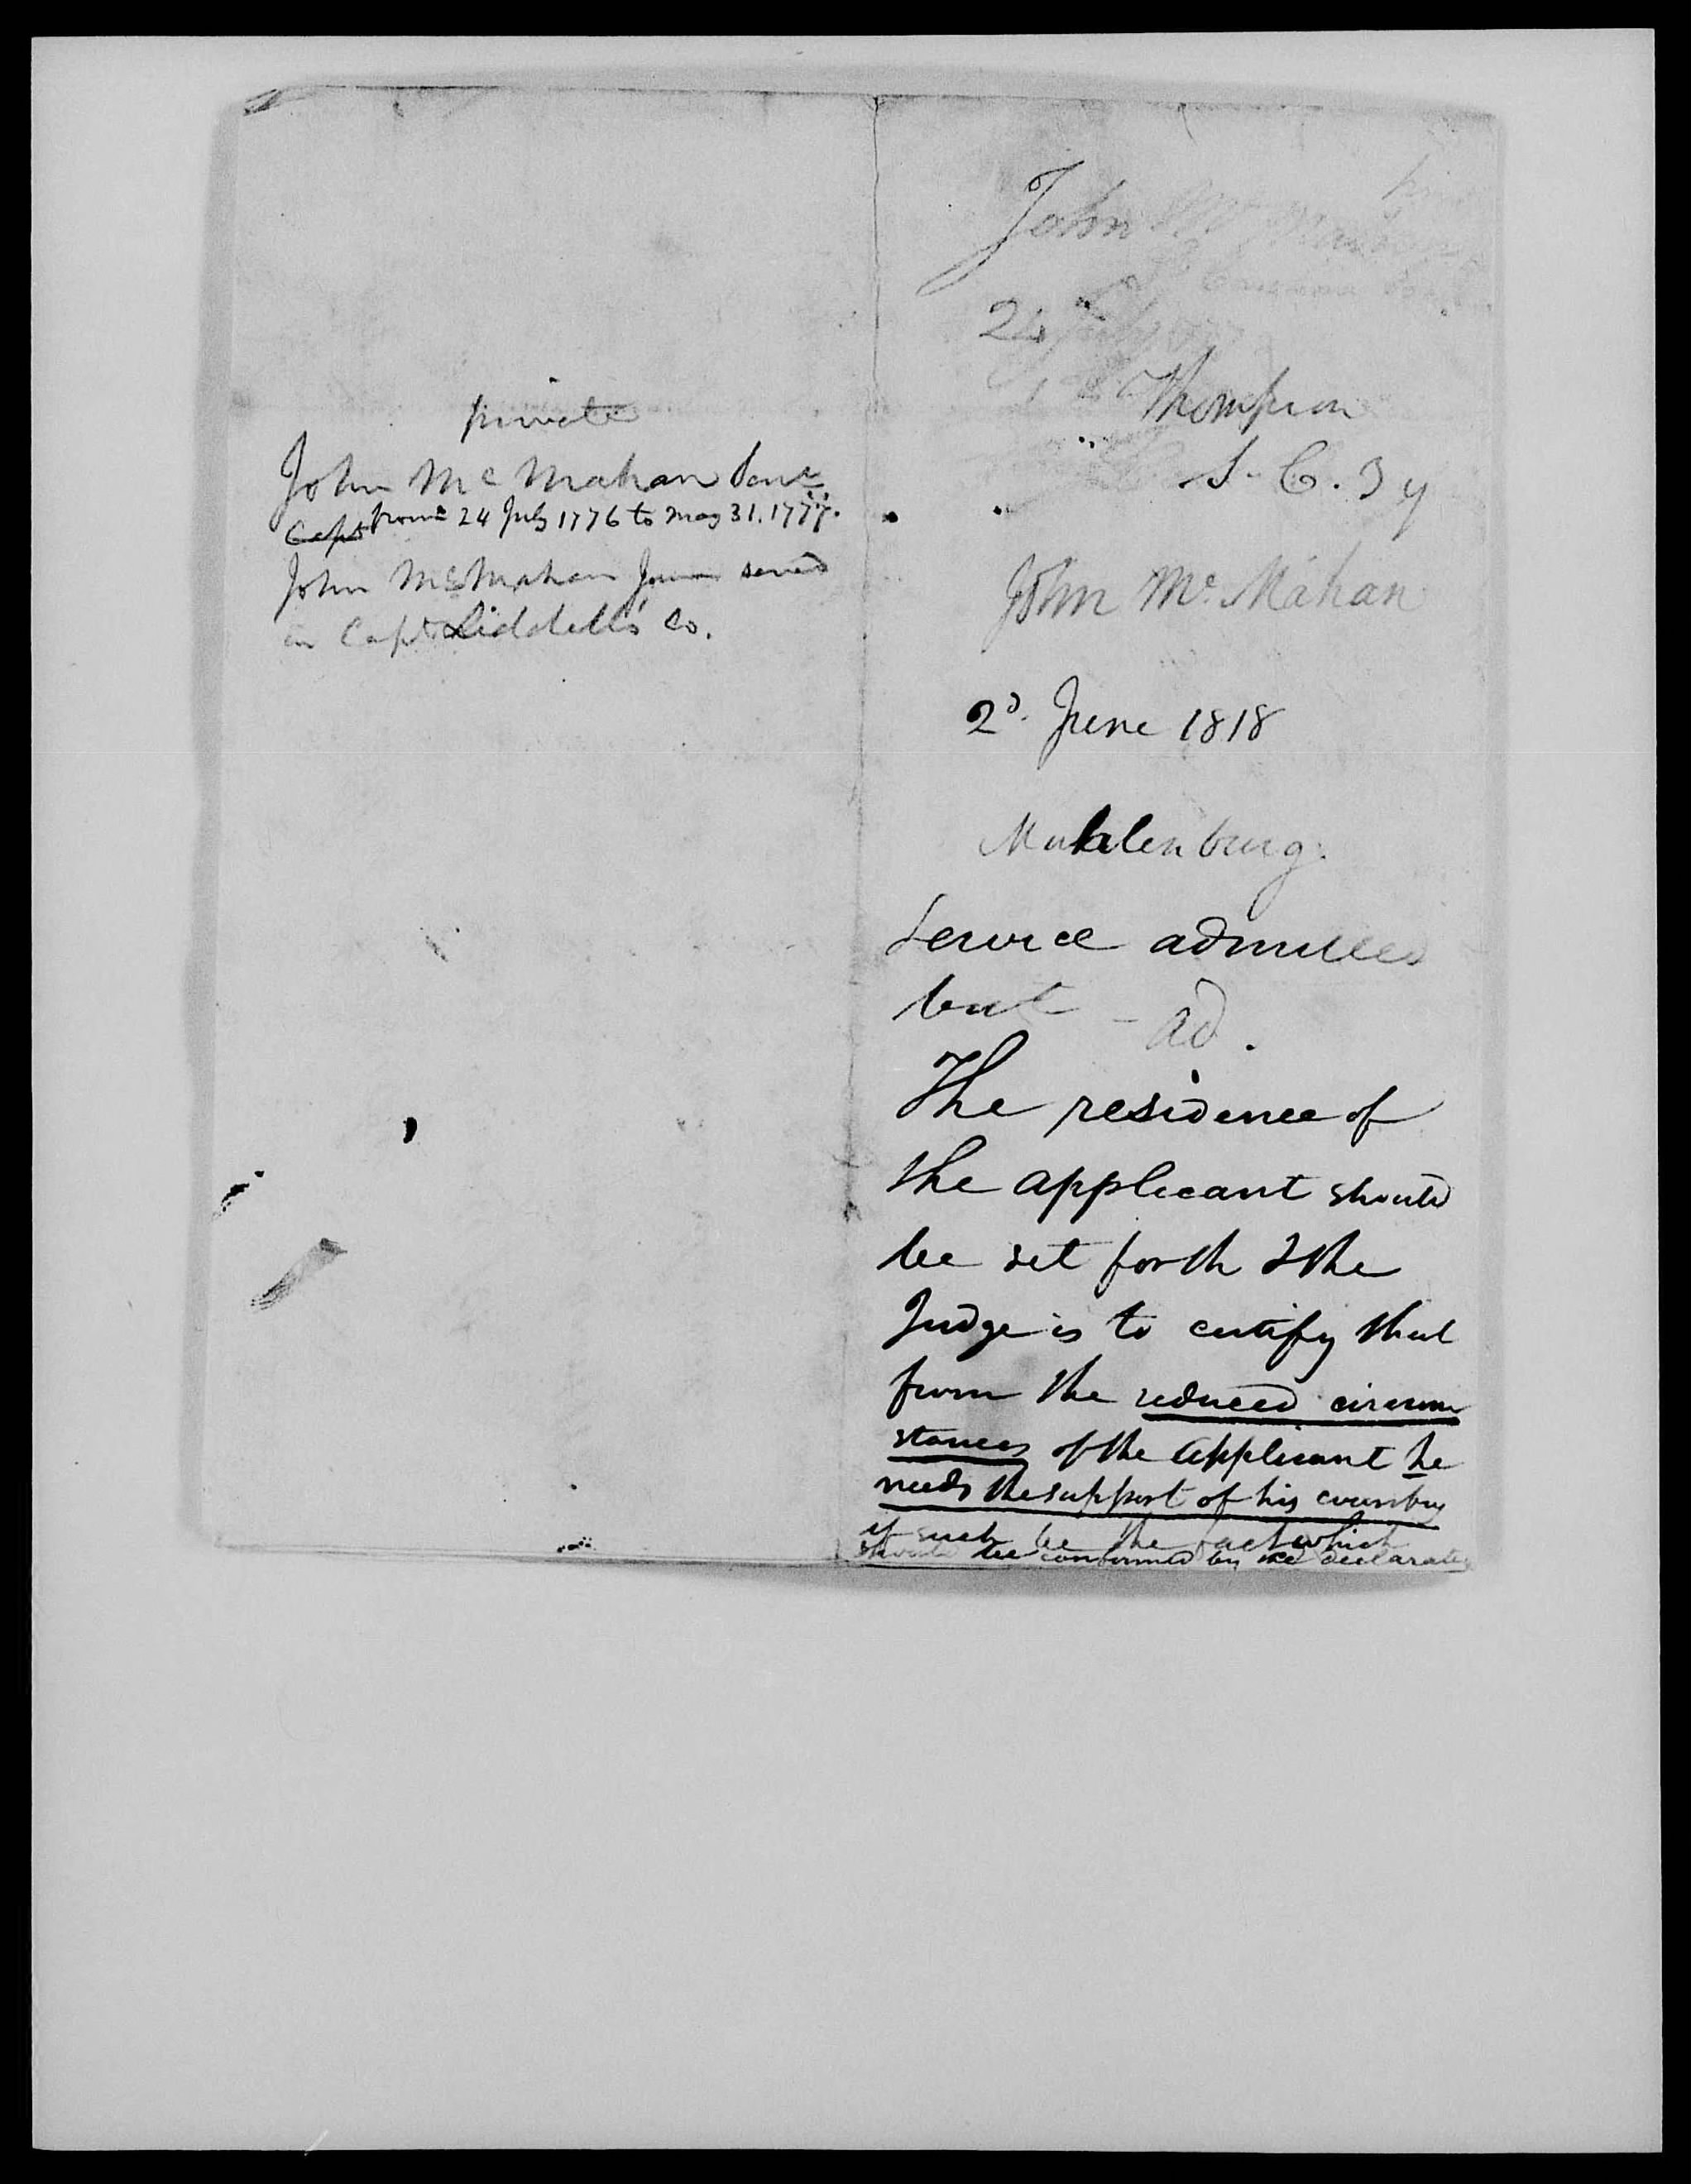 private
John Mc Mahan
Capt from 24 July 1776 to May 31. 1777.
John McMahan served
in Capt Liddell's Co.
John Mc
24
Thompson
John Mc. Mahan
2d. June 1818
Muhlenburg
Service admitted
but - ad.
The residence of
the applicant should
be set forth & the
Judge is to certify that
from the reduced circum
stances of the applicant he
needs the support of his country
if such be the fact which
should be confirmed by the declarat